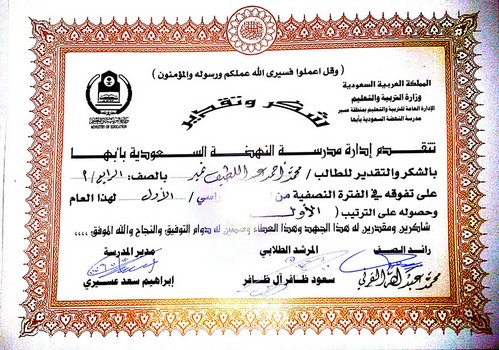 ﴿ وقل اعملوا فسيرى الله عملكم ورسوله والمؤمنون ﴾
المملكة العربية السعودية
وزارة التربية والتعليم
الإدارة العامة للتربية والتعليم بمنطقة عسير
مدرسة النهضة السعودية بأبها
MINISTRY OF EDUCATION
شكر وتقدير
تتقدم إدارة مدرسة النهضة السعودية بأبها
بالشكر والتقدير للطالب / محمد أحمد عبد اللطيف بالصف: الرابع / ٢
على تفوقه في الفترة النصفية من راسي / الأول لهذا العام
وحصوله على الترتيب ( الأول
شاكرين ومقدرين له هذا الجهد وهذا العطاء ومتمنين له دوام التوفيق والنجاح والله الموفق ،،،،
رائد الصف المرشد الطلابي مدير المدرسة
محمد عبد الله سعود ظافر آل ظافر إبراهيم سعد عسيري